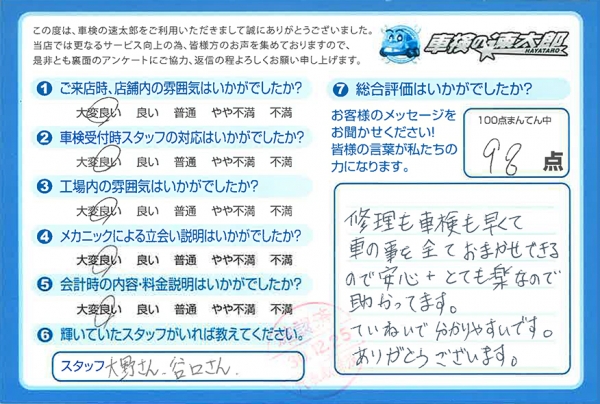 この度は、車検の速太郎をご利用いただきまして誠にありがとうございました。
当店では更なるサービス向上の為、皆様方のお声を集めておりますので、
是非とも裏面のアンケートにご協力、返信の程よろしくお願い申し上げます。
車検の速太郎
HAYATARO
1 ご来店時、店舗内の雰囲気はいかがでしたか?
大変良い 良い 普通 やや不満 不満
2 車検受付時スタッフの対応はいかがでしたか?
大変良い 良い 普通 やや不満 不満
3 工場内の雰囲気はいかがでしたか?
大変良い 良い 普通 やや不満 不満
4 メカニックによる立会い説明はいかがでしたか?
大変良い 良い 普通 やや不満 不満
5 会計時の内容・料金説明はいかがでしたか?
大変良い 良い 普通 やや不満 不満
6 輝いていたスタッフがいれば教えてください。
スタッフ 大野さん、谷口さん
7 総合評価はいかがでしたか?
お客様のメッセージを
お聞かせください!
皆様の言葉が私たちの
力になります。
100点まんてん中
98 点
修理も車検も早くて
車の事を全ておまかせできる
ので安心+とても楽なので
助かってます。
ていねいで分かりやすいです。
ありがとうございます。
12.25